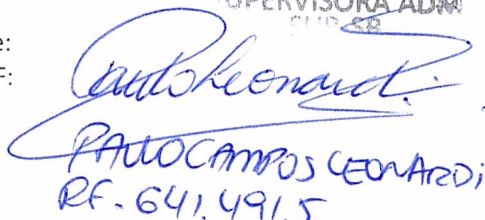 SUPERVISORA ADM
e:
F:
Paulo Leonardi
PAULO CAMPOS LEONARDI
RF. 641.491.5